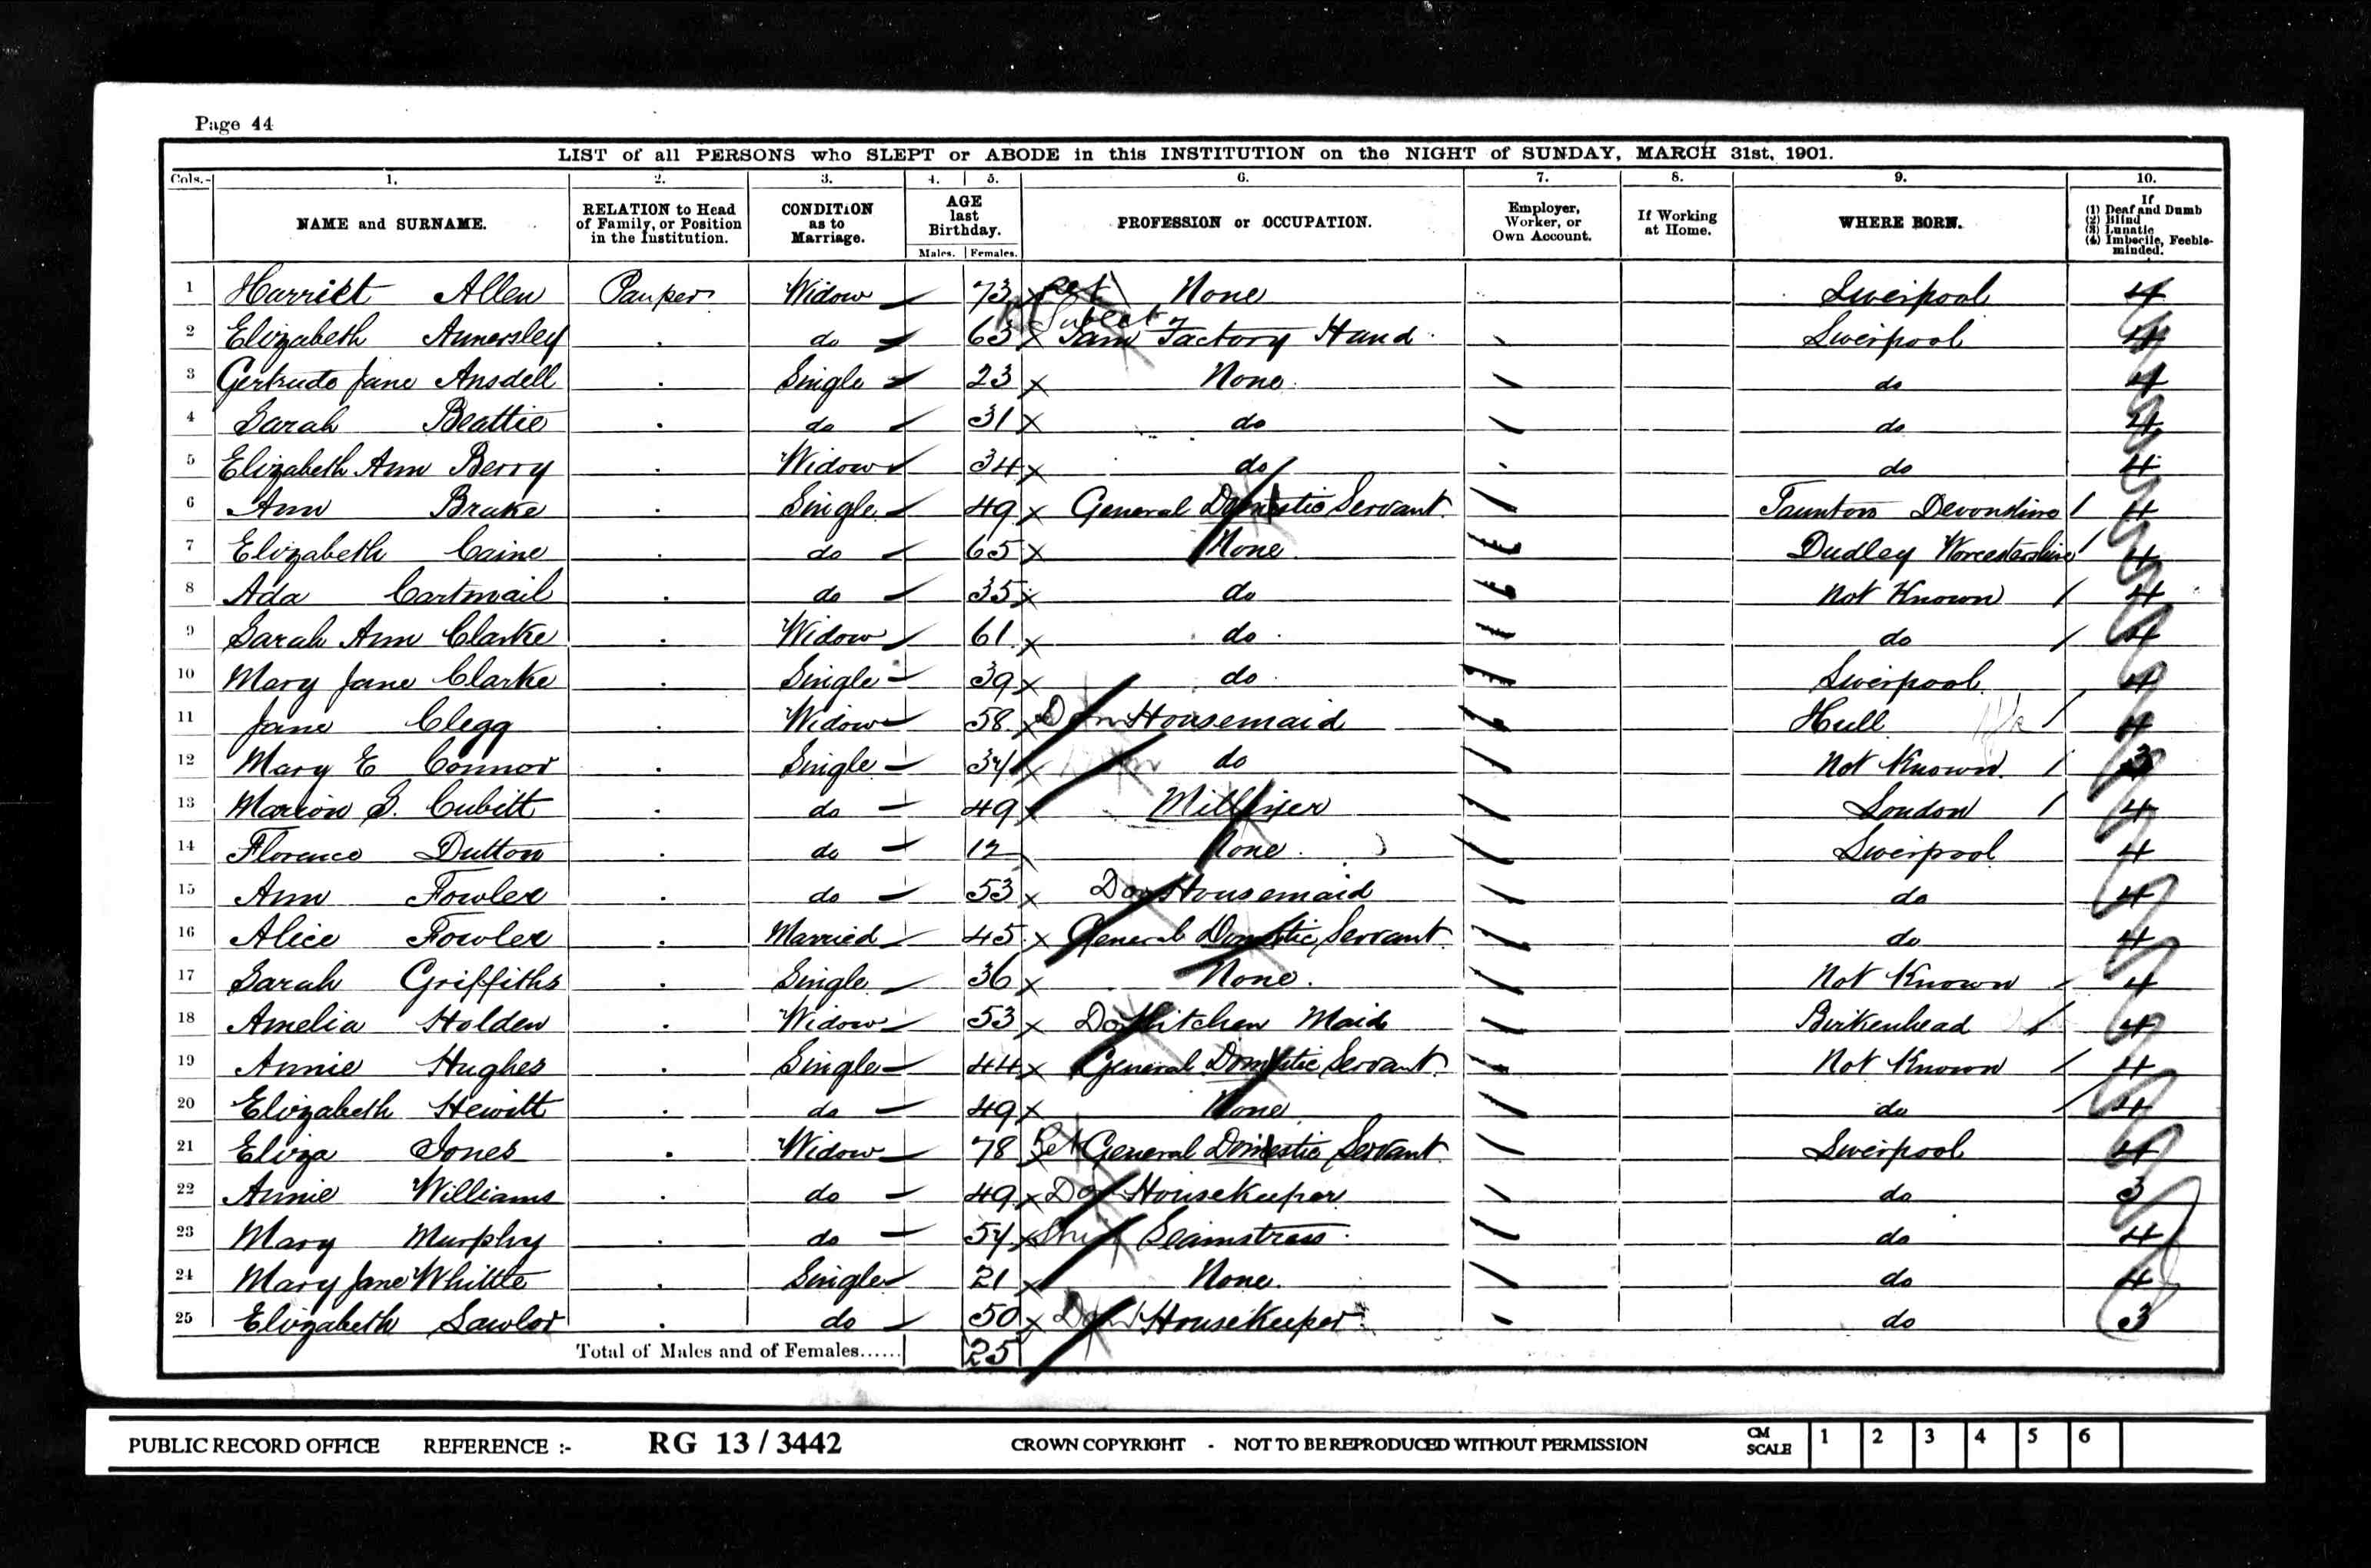 Page 44
LIST of all PERSONS who SLEPT or ABODE in this INSTITUTION on the NIGHT of SUNDAY, MARCH 31st, 1901.
Cols.- 1. 2. 3. 4. 5. 6. 7. 8. 9. 10.
NAME and SURNAME. RELATION to Head of Family, or Position in the Institution. CONDITION as to Marriage. AGE last Birthday. Males. Females. PROFESSION or OCCUPATION. Employer, Worker, or Own Account. If Working at Home. WHERE BORN. If (1) Deaf and Dumb (2) Blind (3) Lunatic (4) Imbecile, Feeble-minded.
1 Harriet Allen Pauper Widow 73 Ret None Liverpool 4
2 Elizabeth Annersley . do 63 Jam Factory Hand Liverpool 4
3 Gertrude Jane Ansdell . Single 23 None do 4
4 Sarah Beattie . do 31 do do 4
5 Elizabeth Ann Berry . Widow 34 do do 4
6 Ann Brake . Single 49 General Domestic Servant Taunton Devonshire 4
7 Elizabeth Caine . do 65 None Dudley Worcestershire 4
8 Ada Cartmail . do 35 do Not Known 4
9 Sarah Ann Clarke . Widow 61 do do 4
10 Mary Jane Clarke . Single 39 do Liverpool 4
11 Jane Clegg . Widow 58 Dom Housemaid Hull 4
12 Mary E Connor . Single 34 do Not Known 3
13 Marion S. Cubitt . do 49 Milliner London 4
14 Florence Dutton . do 12 None Liverpool 4
15 Ann Fowler . do 53 Dom Housemaid do 4
16 Alice Fowler . Married 45 General Domestic Servant do 4
17 Sarah Griffiths . Single 36 None Not Known 4
18 Amelia Holden . Widow 53 Dom Kitchen Maid Birkenhead 4
19 Annie Hughes . Single 44 General Domestic Servant Not Known 4
20 Elizabeth Hewitt . do 49 None do 4
21 Eliza Jones . Widow 78 Ret General Domestic Servant Liverpool 4
22 Annie Williams . do 49 Dom HouseKeeper do 3
23 Mary Murphy . do 54 Seamstress do 4
24 Mary Jane Whittle . Single 21 None do 4
25 Elizabeth Lawlor . do 50 Dom HouseKeeper do 3
Total of Males and of Females...... 25
PUBLIC RECORD OFFICE REFERENCE :- RG 13 / 3442 CROWN COPYRIGHT - NOT TO BE REPRODUCED WITHOUT PERMISSION CM SCALE 1 2 3 4 5 6